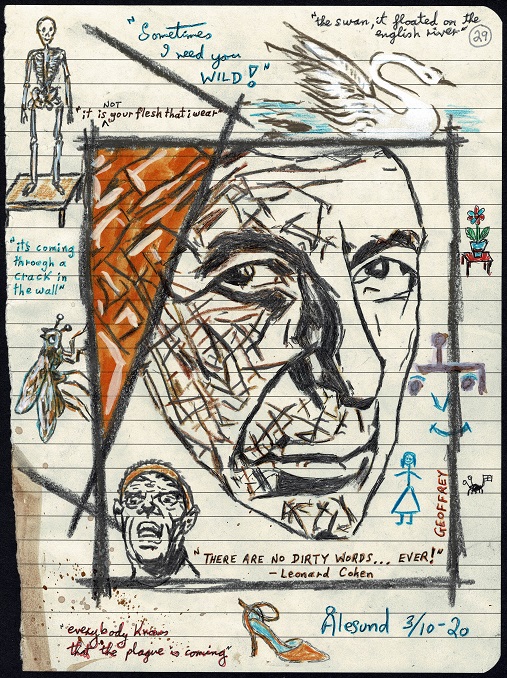 "Sometimes
I need you
WILD!"
"the swan, it floated on the
english river"
29
"it is NOT your flesh that i wear"
"it's coming
through a
crack in
the wall"
GEOFFREY
"THERE ARE NO DIRTY WORDS... EVER!"
- Leonard Cohen
"everybody knows
that the plague is coming"
Ålesund 3/10-20